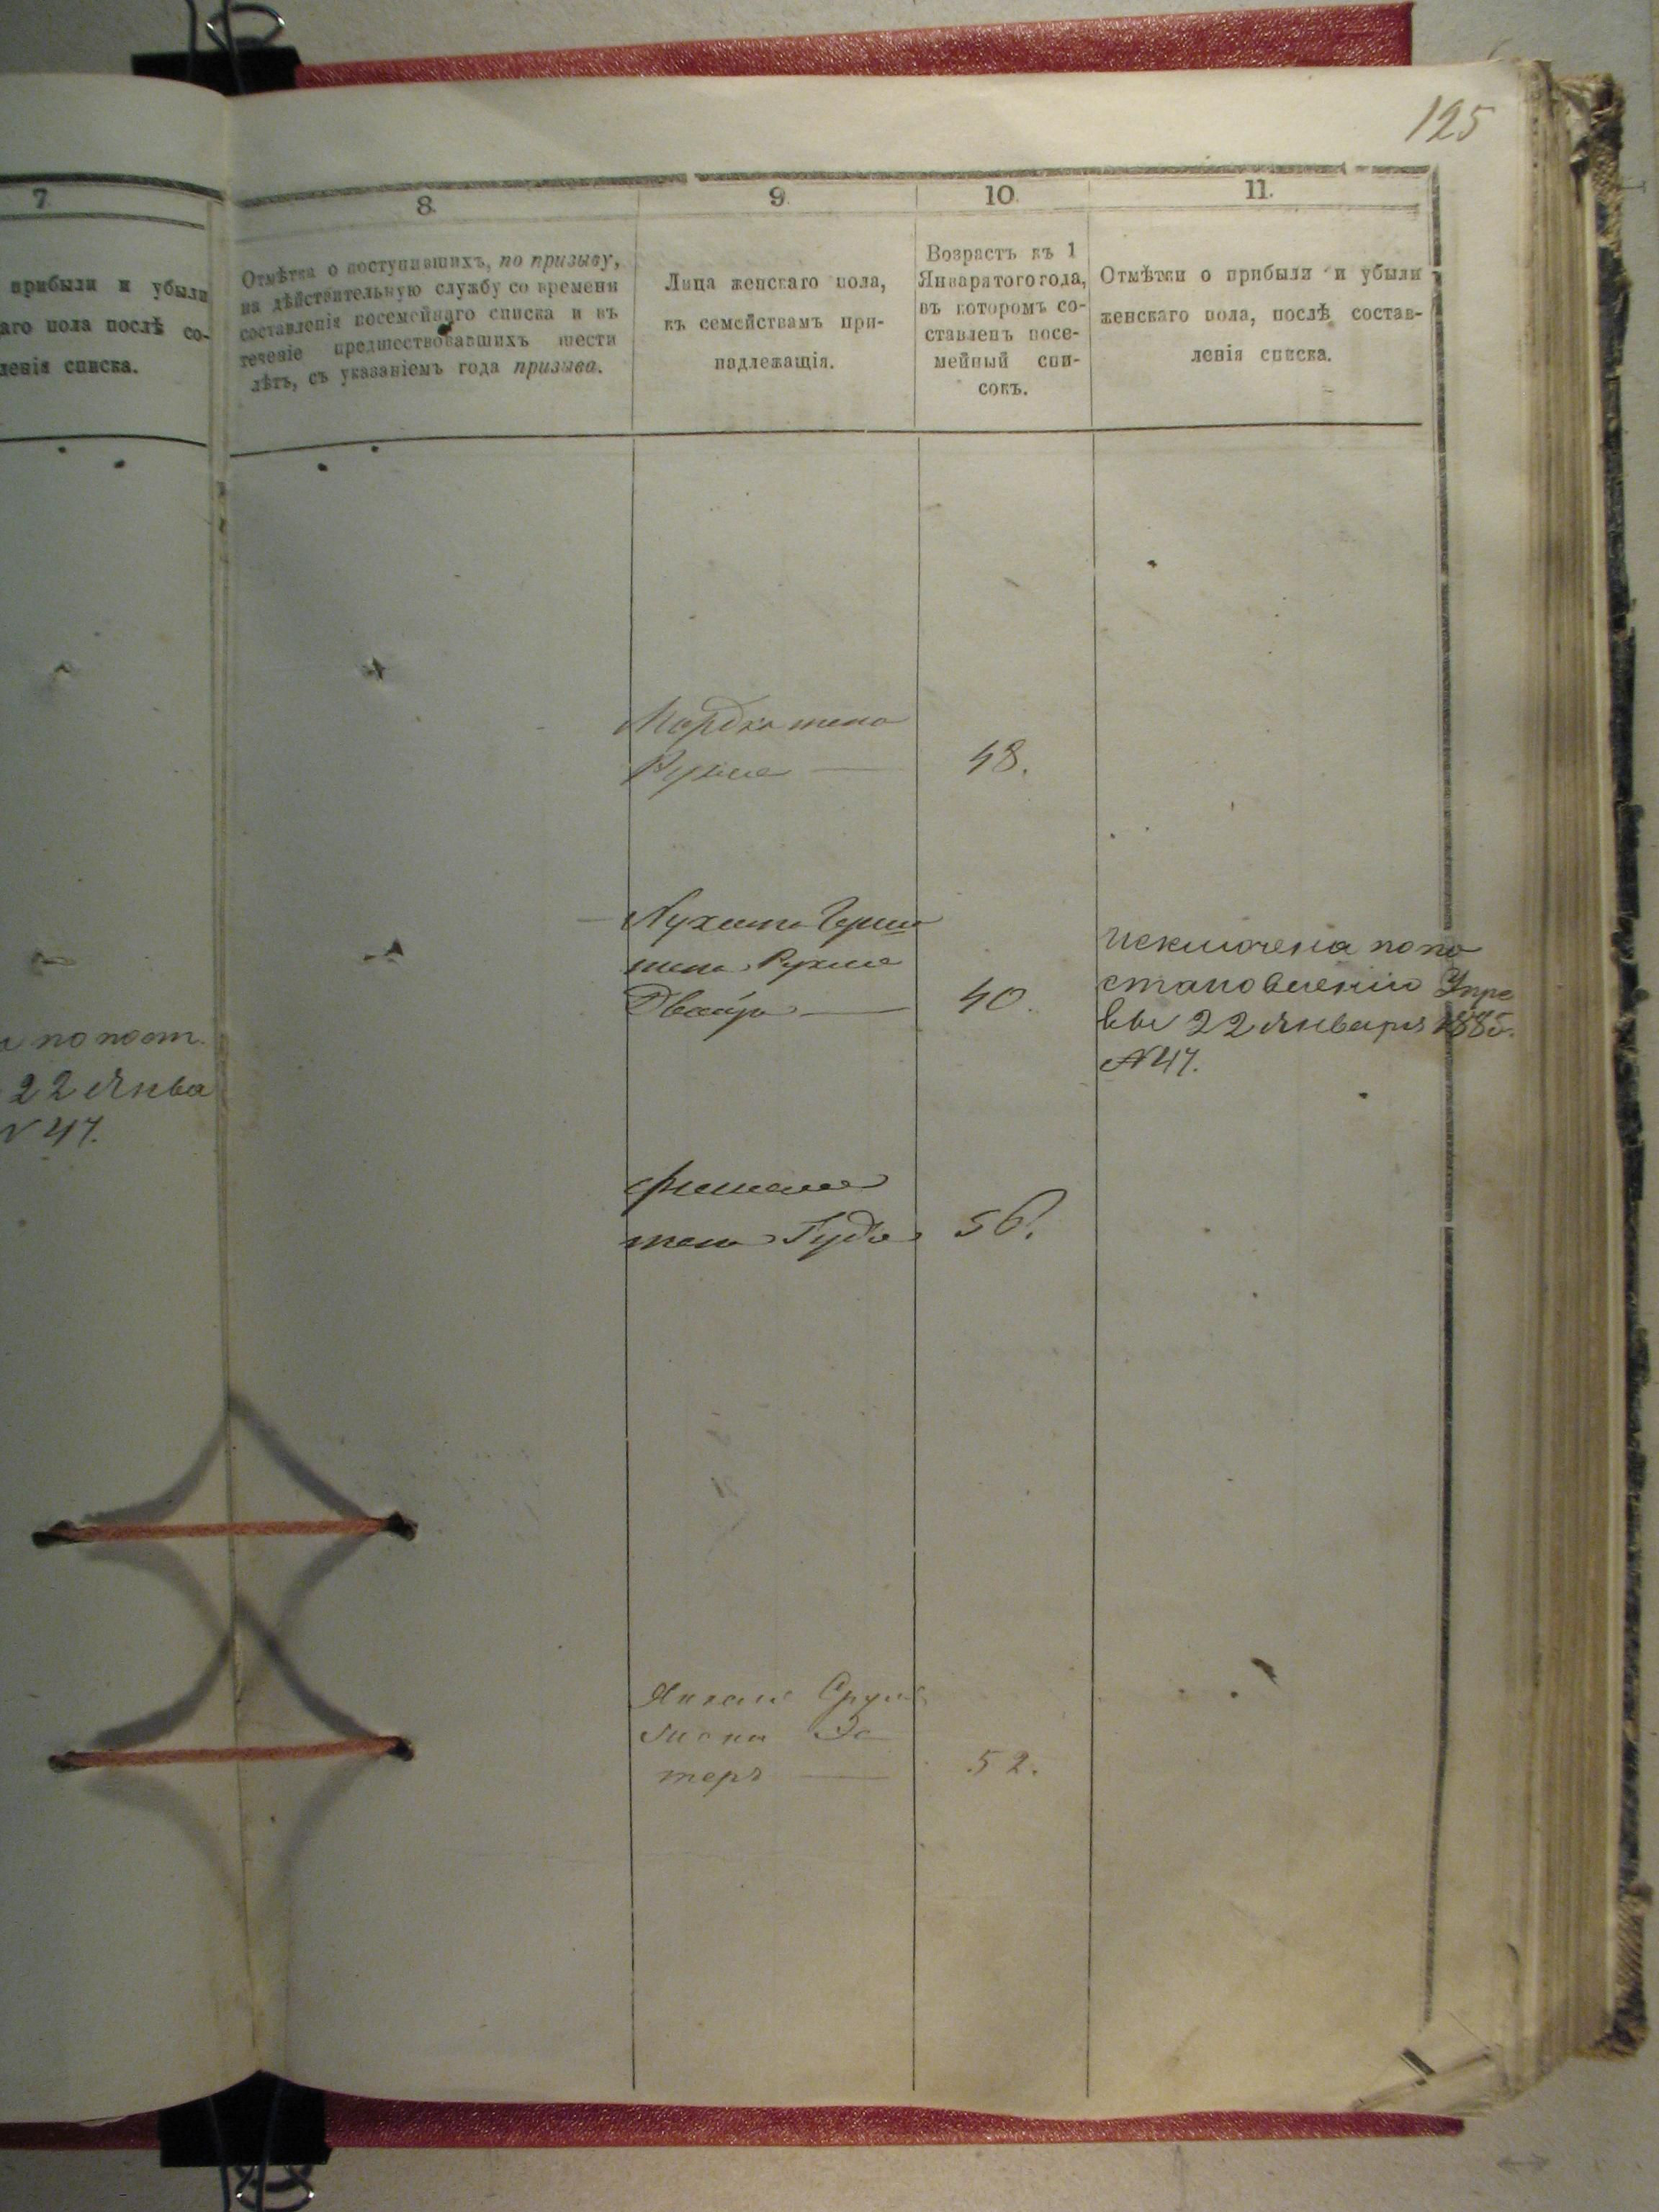 125
7
прибыли и убыли
аго пола послѣ со-
ленія списка.
а по пост.
22 Янва
№ 47.
8.
Отмѣтка о поступившихъ, по призыву,
на дѣйствительную службу со времени
составленія посемейнаго списка и въ
теченіе предшествовавшихъ шести
лѣтъ, съ указаніемъ года призыва.
9.
Лица женскаго пола,
къ семействамъ при-
надлежащія.
10.
Возрастъ къ 1
Января того года,
въ которомъ со-
ставленъ посе-
мейный спи-
сокъ.
11.
Отмѣтки о прибыли и убыли
женскаго пола, послѣ состав-
ленія списка.
Мордка жена
48.
жена Рухля
Двейра — 40.
Исключена по по
становленію Упра
вы 22 Января 1885.
№ 47.
жена Гуда 56.
Янкеля
жена Эс
теръ — 52.